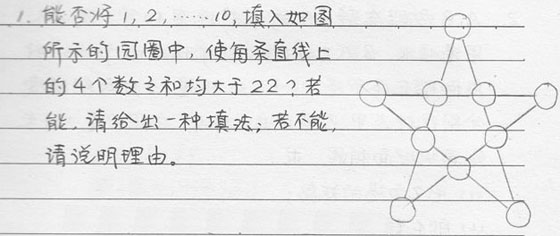 1. 能否将1,2,……10,填入如图
所示的园圈中,使每条直线上
的4个数之和均大于22?若
能,请给出一种填法;若不能,
请说明理由。